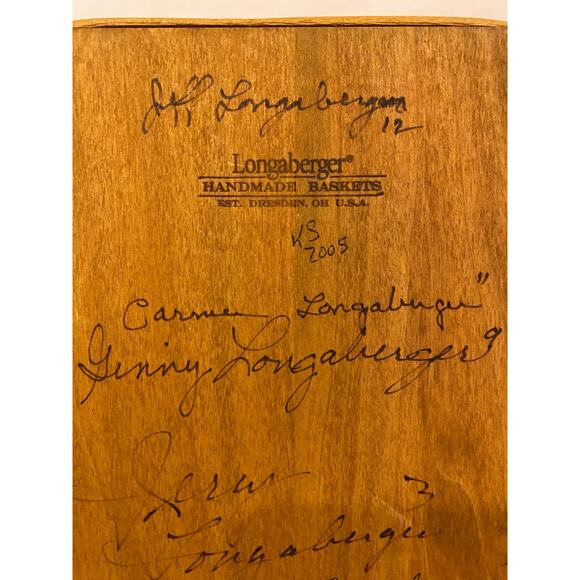 Jeff Longaberger
12
Longaberger®
HANDMADE BASKETS
EST. DRESDEN, OH U.S.A.
KS
2005
Carmen Longaberger 11
Ginny Longaberger 9
Jerry 3
Longaberger